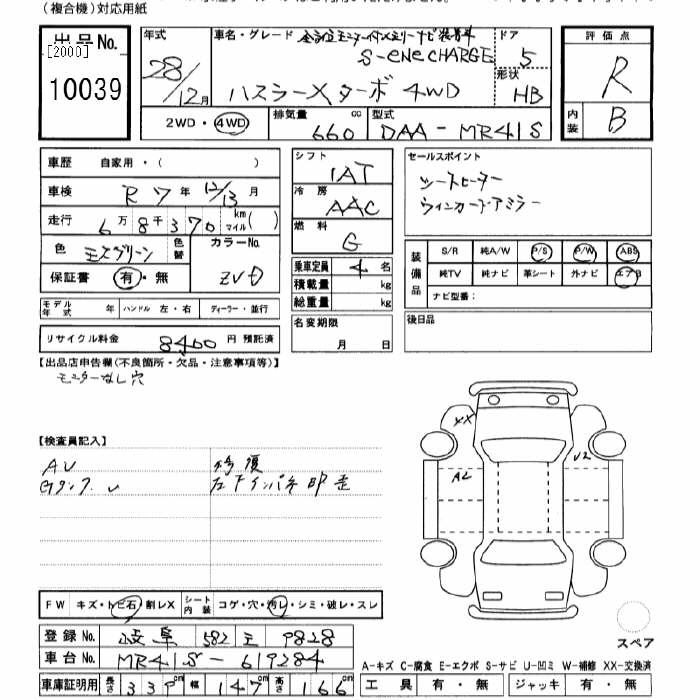 (複合機)対応用紙
出品No.
[2000]
10039
年式
28/12月
車名・グレード
S-eneCHARGE
ハスラーXターボ 4WD
ドア
5
形状
HB
2WD・4WD
排気量
660
cc
型式
DAA-MR41S
評価点
R
内装
B
車歴 自家用・( )
車検 R7年 12/13月
走行 6万8千370 km マイル( )
色 モスグリーン 色替
カラーNo.
保証書 有・無
モデル年式 年 ハンドル 左・右 ディーラー・並行
リサイクル料金 8400 円 預託済
シフト
IAT
冷房
AAC
燃料
G
乗車定員 4 名
積載量 kg
総重量 kg
名変期限
月 日
セールスポイント
シートヒーター
ウィンカードアミラー
装備品
S/R 純A/W P/S P/W ABS
純TV 純ナビ 革シート 外ナビ エアB
ナビ型番:
後日品
【出品店申告欄(不良箇所・欠品・注意事項等)】
モニターなし穴
【検査員記入】
AU
修復
XX
U2
FW キズ・トビ石・割レX シート内装 コゲ・穴・汚レ・シミ・破レ・スレ
登録No. 岐阜 582 9828
車台No. MR41S-619284
車庫証明用 長さ 339 cm 幅 147 cm 高さ 166 cm
スペア
A-キズ C-腐食 E-エクボ S-サビ U-凹ミ W-補修 XX-交換済
工具 有・無 ジャッキ 有・無